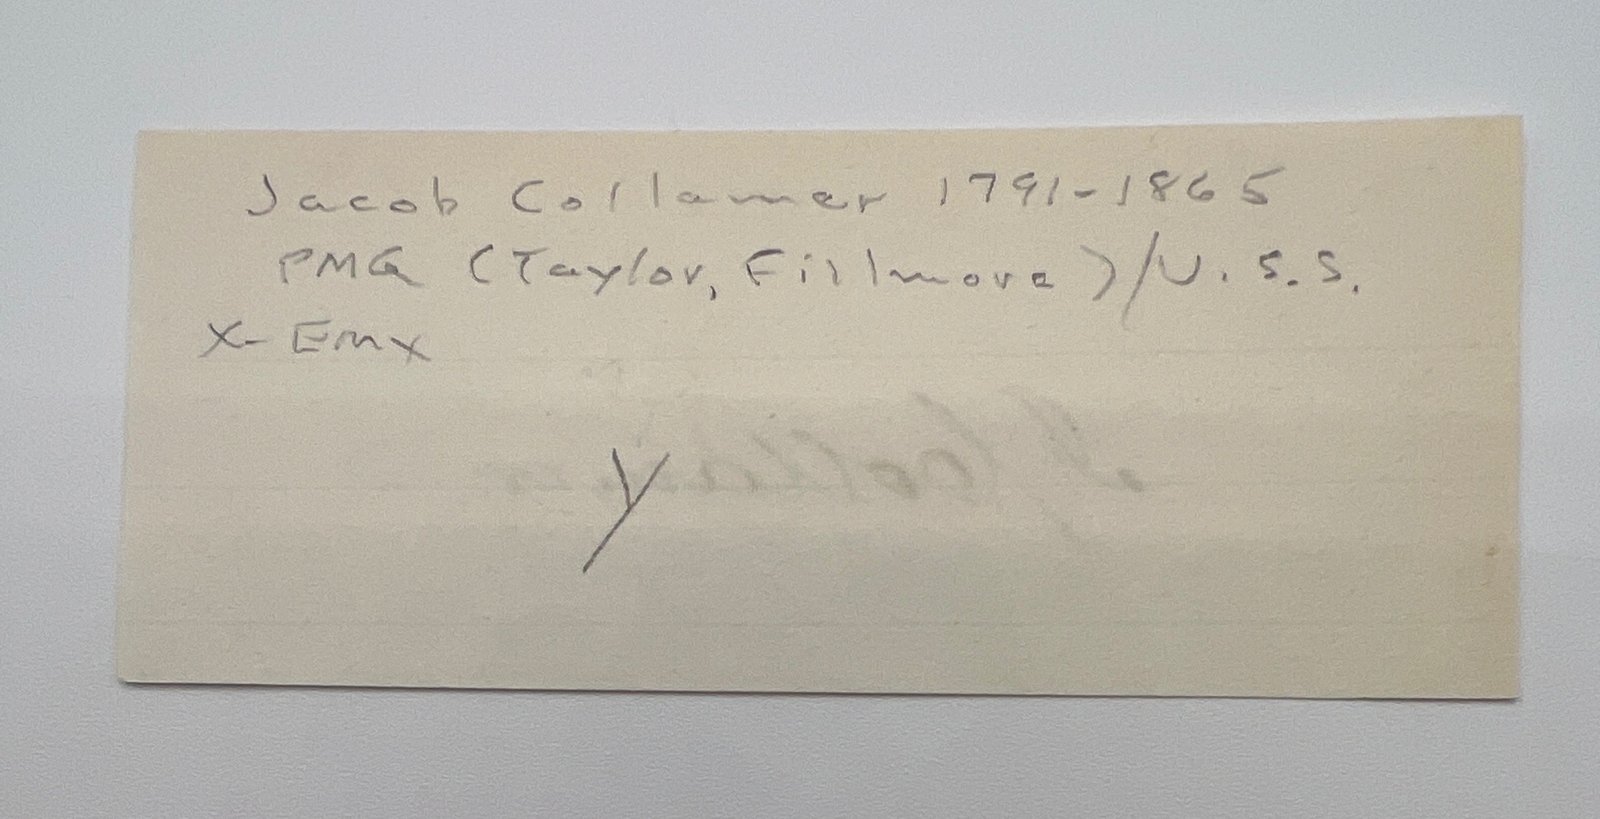 Jacob Collamer 1791-1865
PMG (Taylor, Fillmore)/U.S.S.
X- Emx
y